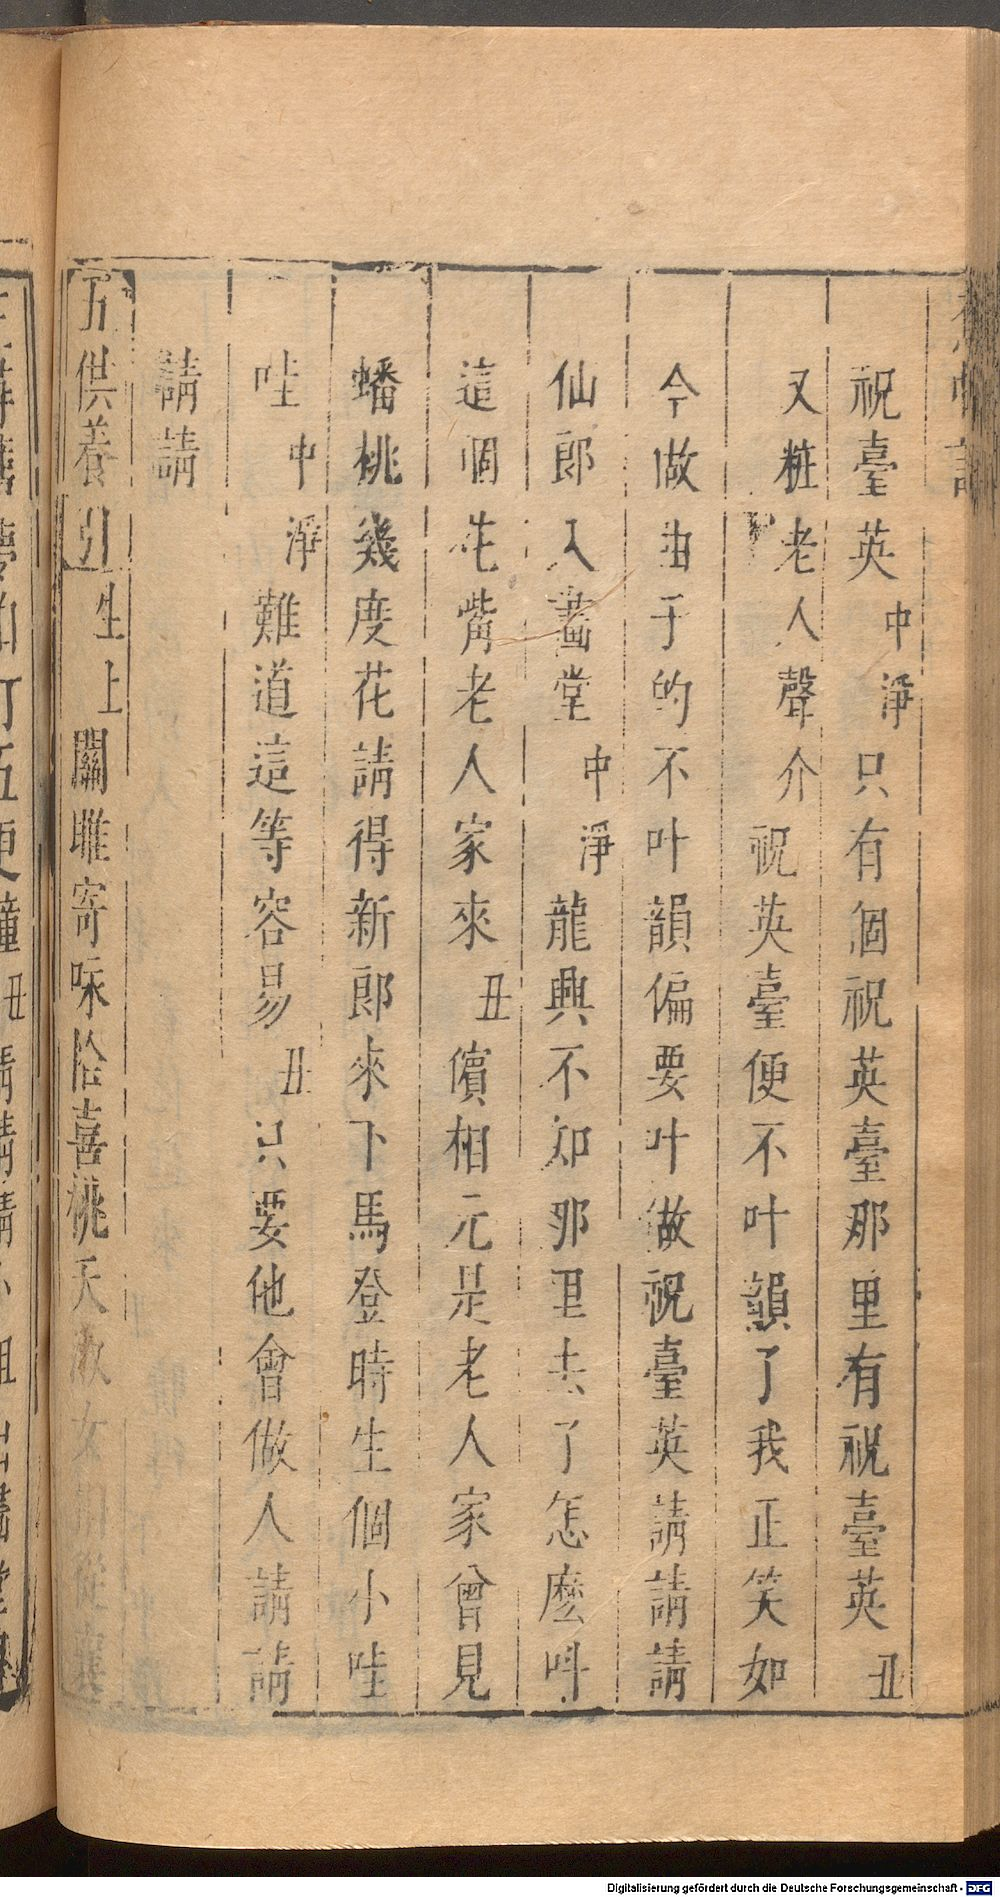 祝臺英中淨只有個祝英臺那里有祝臺英丑
又粧老人聲介祝英臺便不叶韻了我正笑如
今做曲子的不叶韻偏要叶做祝臺英請請請
仙郎入畫堂中淨龍興不知那里去了怎麽呌
這個花嘴老人家來丑儐相元是老人家曾見
蟠桃幾度花請得新郎來下馬登時生個小哇
哇中淨難道這等容易丑只要他會做人請請
請請
五供養引生上關雎寄咏恰喜桃夭淑女
Digitalisierung gefördert durch die Deutsche Forschungsgemeinschaft - DFG